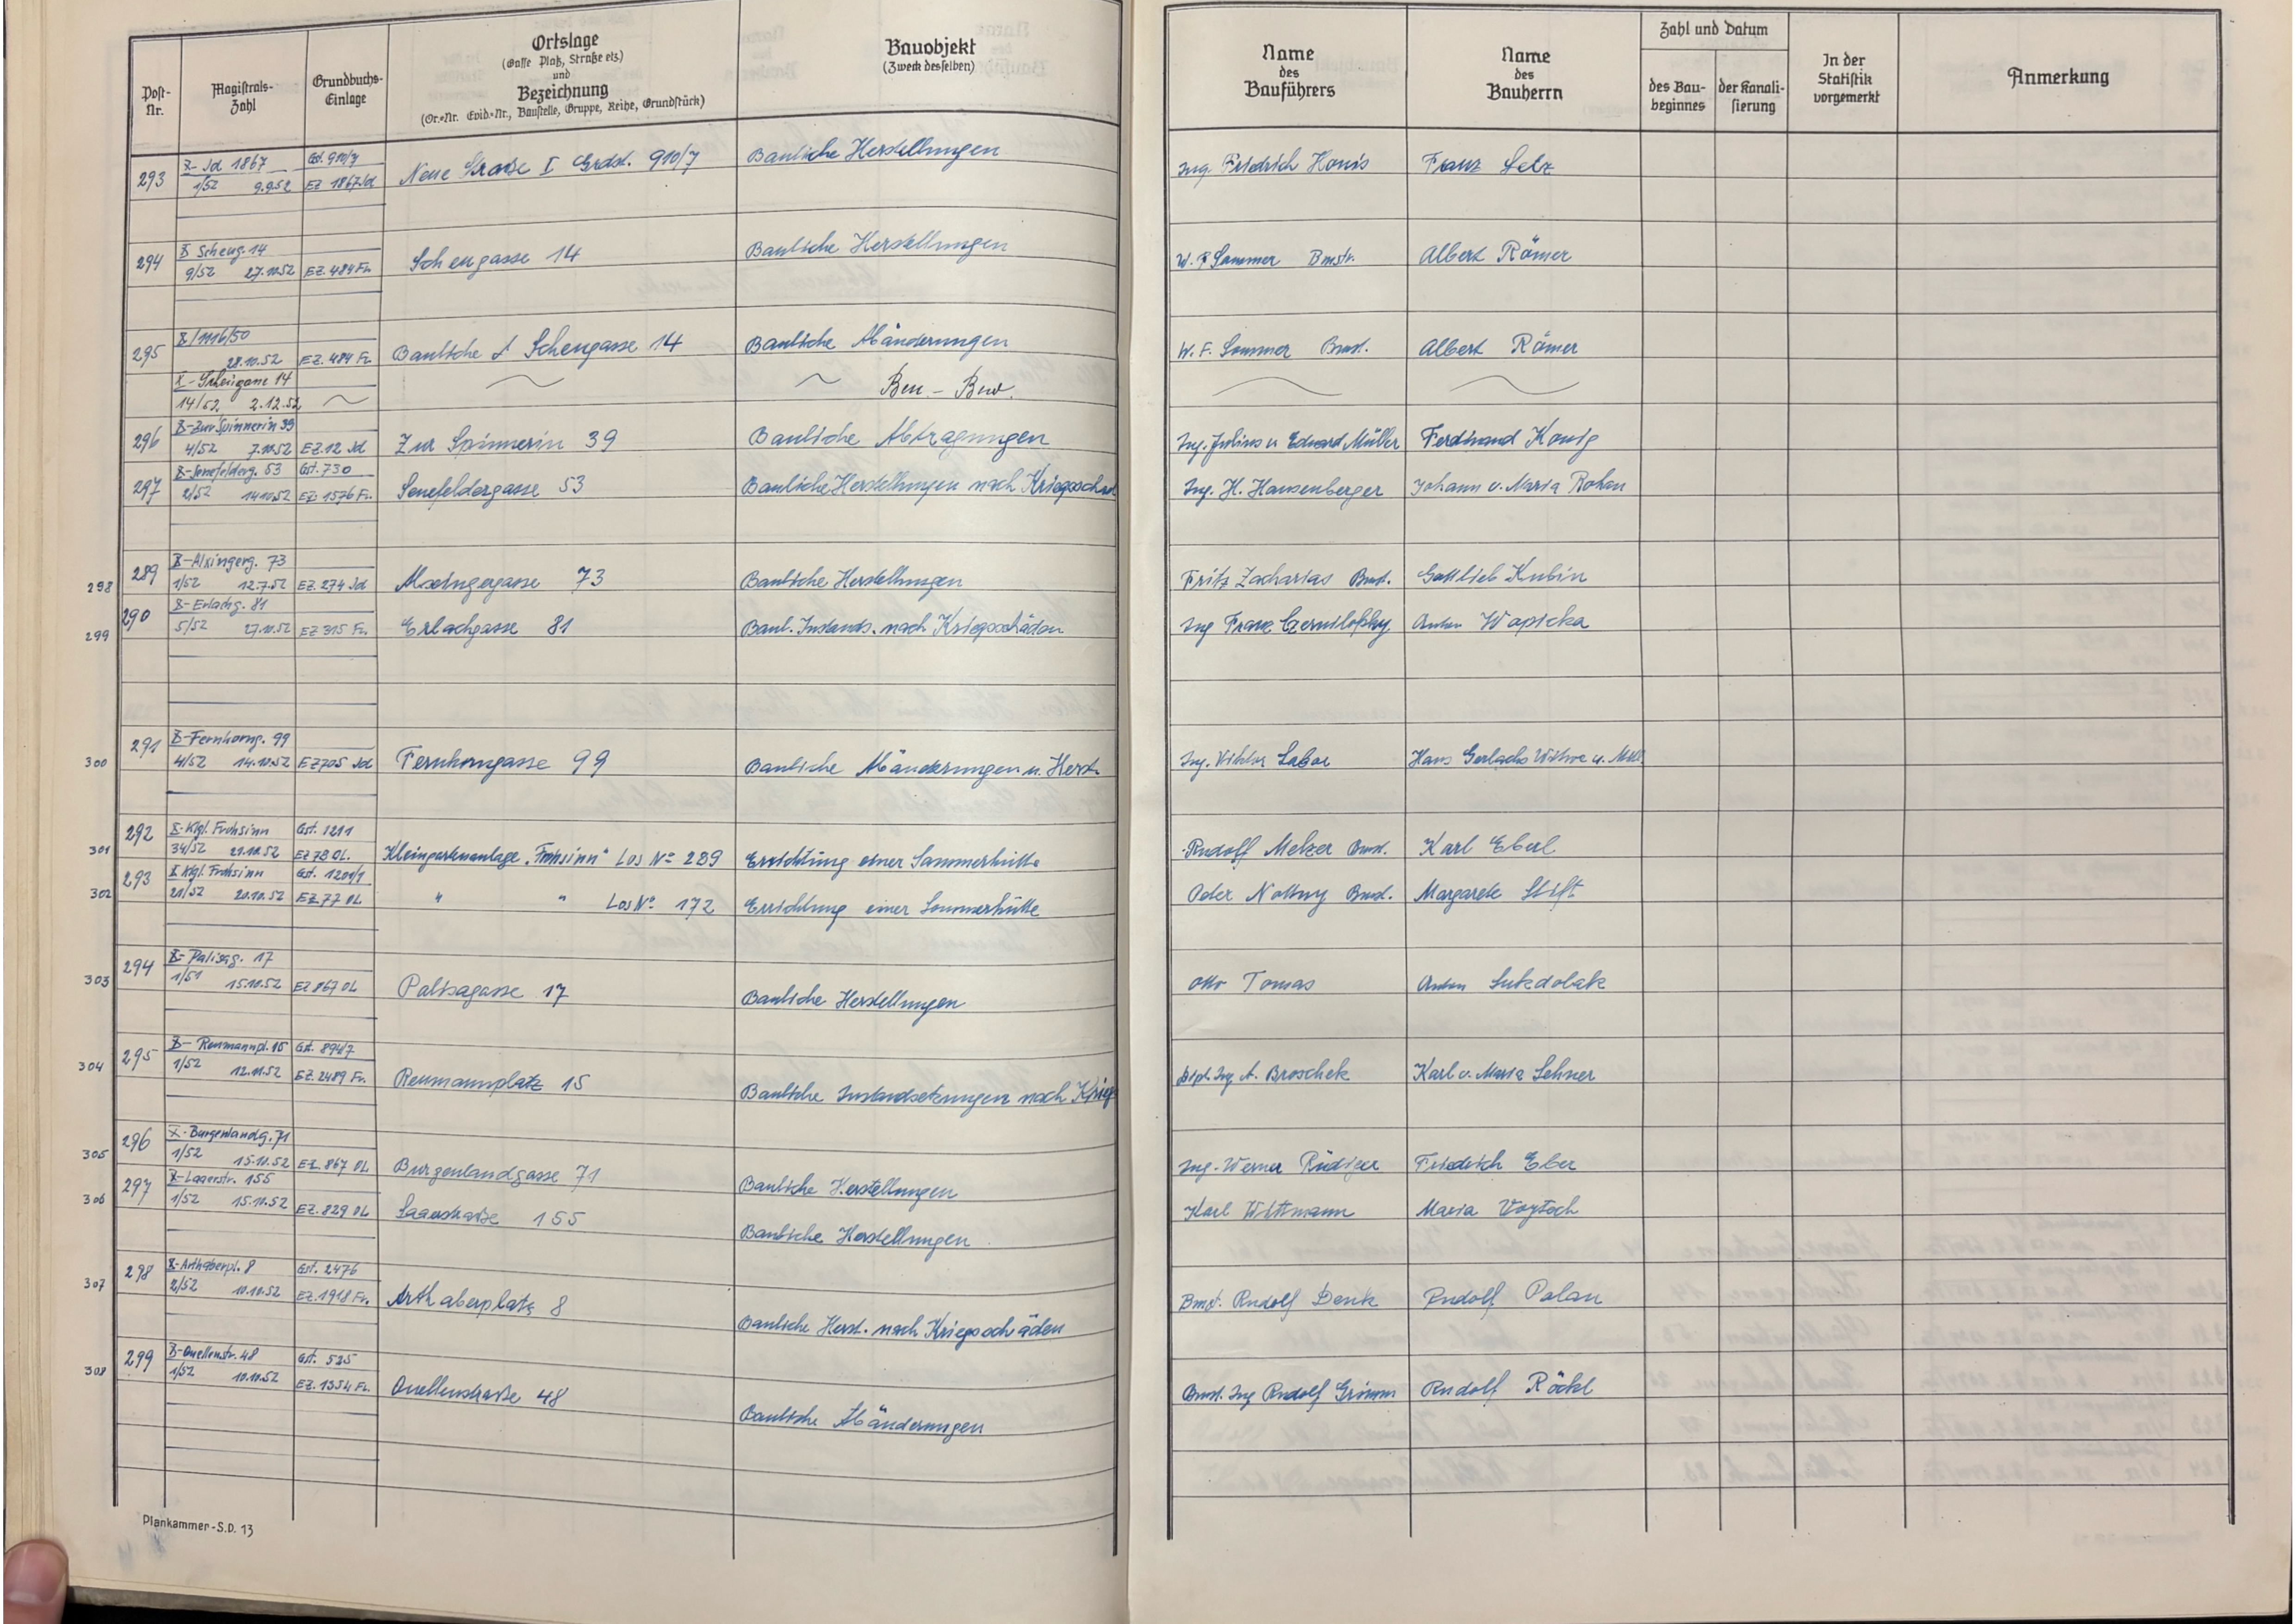 Post-Nr.
Magistrats-Zahl
Grundbuchs-Einlage
Ortslage
(Gasse Platz, Straße etz)
und
Bezeichnung
(Or.-Nr. Evid.-Nr., Baustelle, Gruppe, Reihe, Grundstück)
Bauobjekt
(Zweck desselben)
Name
des
Bauführers
Name
des
Bauherrn
Zahl und Datum
des Bau-beginnes
der Kanali-sierung
In der
Statistik
vorgemerkt
Anmerkung
X- Jd 1867 Gst. 910/7
293 1/52 9.9.52 EZ 1867 Jd Neue Strasse I Grdst. 910/7 Bauliche Herstellungen Ing. Friedrich Franz
X Scheug. 14
294 9/52 27.10.52 EZ. 484 Fr. Scheugasse 14 Bauliche Herstellungen W. F. Sommer Bmstr. Albert Römer
X/1116/50
295 28.10.52 EZ. 484 Fr. Scheugasse 14 Bauliche Abänderungen W. F. Sommer Bmst. Albert Römer
X-Scheugasse 14
14/52 2.12.52 Ben.- Bew.
X-Zur Spinnerin 39
296 4/52 7.10.52 EZ 12 Jd Zur Spinnerin 39 Bauliche Abtragungen Ing. Julius u Eduard Müller Ferdinand König
X-Senefelderg. 53 Gst. 730
297 2/52 14.10.52 EZ 1576 Fr. Senefeldergasse 53 Bauliche Herstellungen nach Kriegsschäd Ing. H. Hausenberger Johann u. Maria Rohan
X-Alxingerg. 73
298 289 1/52 12.7.52 EZ. 274 Jd Alxingergasse 73 Bauliche Herstellungen Fritz Zacharias Bmst. Gottlieb Kubin
X-Erlachg. 81
299 290 5/52 27.10.52 EZ 315 Fr. Erlachgasse 81 Baul. Instands. nach Kriegsschäden Ing Franz Anton Wapicka
X-Fernkorng. 99
300 291 4/52 14.10.52 EZ 705 Jd Fernkorngasse 99 Bauliche Abänderungen u. Herst. Ing. Viktor Hans Gerlachs Witwe u.
X-Klgl. Frohsinn Gst. 1211
301 292 34/52 21.10.52 EZ 78 OL. Kleingartenanlage "Frohsinn" Los No 289 Errichtung einer Sommerhütte Rudolf Melzer Bmst. Karl Eberl
X Klgl. Frohsinn Gst. 1201/1
302 293 21/52 20.10.52 EZ 77 OL " " Los No 172 Errichtung einer Sommerhütte Bmst. Margarete Stift
X-Palisag. 17
303 294 1/51 15.10.52 EZ 867 OL Palisagasse 17 Bauliche Herstellungen Otto Tomas Anton
X- Reumannpl. 15 Gst. 894/7
304 295 1/52 12.11.52 EZ. 2489 Fr. Reumannplatz 15 Bauliche Instandsetzungen nach Krieg Dipl. Ing A. Broschek Karl u. Maria Lehner
X-Burgenlandg. 71
305 296 1/52 15.10.52 EZ. 867 OL Burgenlandgasse 71 Bauliche Herstellungen Ing. Werner Rüdiger Friedrich Eber
X-Laaerstr. 155
306 297 1/52 15.10.52 EZ. 829 OL Laaerstraße 155 Bauliche Herstellungen Karl Wittmann Maria Voytech
X-Arthaberpl. 8 Gst. 2476
307 298 2/52 10.10.52 EZ. 1918 Fr. Arthaberplatz 8 Bauliche Herst. nach Kriegsschäden Bmst. Rudolf Denk Rudolf Palan
X-Quellenstr. 48 Gst. 525
308 299 1/52 10.10.52 EZ. 1354 Fr. Quellenstraße 48 Bauliche Abänderungen Bmst. Ing Rudolf Grimm Rudolf Röckl
Plankammer-S.D. 13